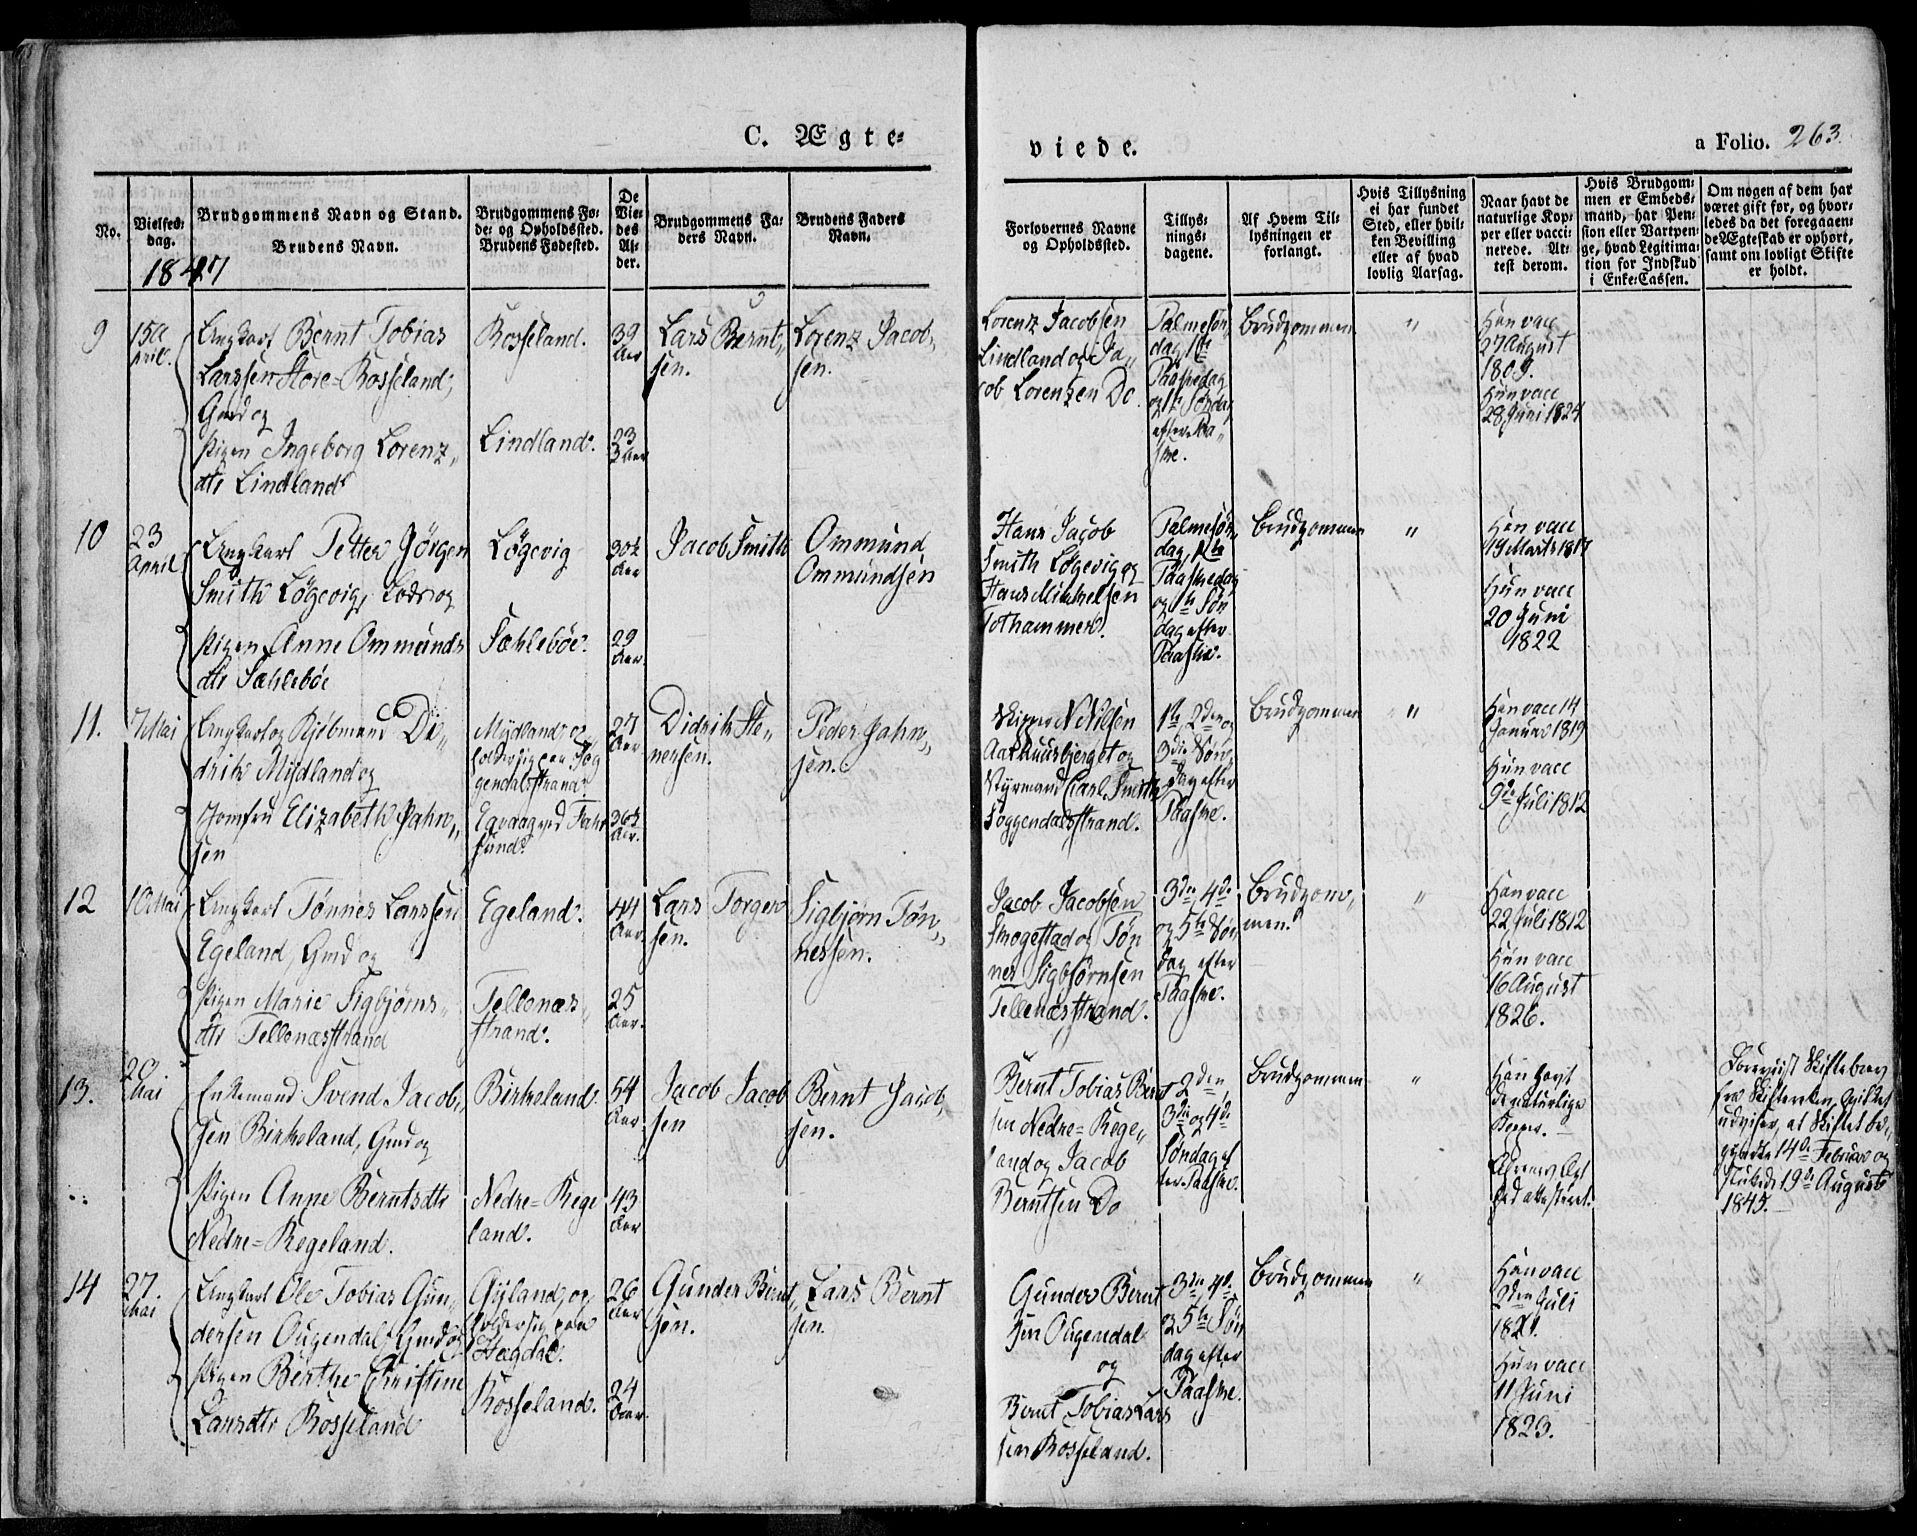 C. Ægte-
viede.
a Folio. 263.
No.
Vielses-
dag.
1847
Brudgommens Navn og Stand.
Brudens Navn.
Brudgommens Fø-
de- og Opholdssted.
Brudens Fødested.
De
Vie-
des
Al-
der.
Brudgommens Fa-
ders Navn.
Brudens Faders
Navn.
Forlovernes Navne
og Opholdssted.
Tillys-
nings-
dagene.
Af Hvem Til-
lysningen er
forlangt.
Hvis Tillysning
ei har fundet
Sted, eller hvil-
ken Bevilling
eller af hvad
lovlig Aarsag.
Naar havt de
naturlige Kop-
per eller vacci-
nerede. At-
test derom.
Hvis Brudgom-
men er Embeds-
mand, har Pen-
sion eller Vartpen-
ge, hvad Legitima-
tion for Indskud
i Enke-Cassen.
Om nogen af dem har
været gift før, og hvor-
ledes da det foregaaen-
de Ægteskab er ophørt,
samt om lovligt Skifte
er holdt.
9
15 A
pril.
Ungkarl Bernt Tobias
Larssen Store-Rosseland,
Gmd og
Pigen Ingeborg Lorenz-
dtr Lindland
Rosseland.
Lindland.
39
Aar
23
Aar
Lars Bernt-
sen.
Lorenz Jacob-
sen.
Lorenz Jacobsen
Lindland og Ja-
cob Lorenzen Do
Palmesøn-
dag, 1ste
Paaskedag
og 1ste Søndag
efter Paa-
ske.
Brudgommen
"
Han vacc
27 August
1809.
Hun vacc
28 Juni 1824
10
23
April
Ungkarl Petter Jørgen
Smith Løgevig, Lods og
Pigen Anne Ommunds
dtr Sæhlebøe
Løgevig
Sæhlebøe.
30½
Aar
29
Aar.
Jacob Smith
Ommund
Ommundsen
Hans Jacob
Smith Løgevig og
Hans Mikkelsen
Tothammer.
Palmesøn-
dag, 1ste
Paaskedag
og 1ste Søn
dag efter
Paaske.
Brudgommen
"
Han vacc
19 Marts 1817
Hun vacc
20 Juni
1822
11.
7 Mai
Ungkarl og Kjøbmand Di-
drik Mydland og
Jomfru Elizabeth Jahn-
sen
Mydland, op-
holder sig paa Sog
gendalsstrand.
ved Fahr
sund.
27
Aar.
36½
Aar.
Didrik Ste-
nersen.
Peder Jahn-
sen.
Skipper N Nilsen
Aarhuusbjerget og
Styrmand Carl Smith
Soggendalsstrand.
1ste, 2den og
3die Søn-
dag efter
Paaske.
Brudgommen
"
Han vacc 14
Januar 1819
Hun vacc
9de Juli 1812
12
10 Mai
Ungkarl Tønnes Larssen
Egeland, Gmd og
Pigen Marie Sigbjørns-
dtr Tellenæsstrand
Egeland.
Tellenæs-
strand.
44
Aar.
25
Aar.
Lars Torger
sen.
Sigbjørn Tøn-
nessen.
Jacob Jacobsen
Smogestad og Tøn
nes Sigbjørnsen
Tellenæsstrand.
3die, 4de
og 5te Søn
dag efter
Paaske.
Brudgom-
men.
"
Han vacc
22 Juli 1812
Hun vacc
16 August
1826.
13.
20
Mai
Enkemand Svend Jacob-
sen Birkeland, Gmd og
Pigen Anne Berntsdtr
Nedre-Regeland.
Birkeland
Nedre-Rege
land.
54
Aar
43
Aar
Jacob Jacob
sen
Bernt Jacob-
sen.
Bernt Tobias Bernt
sen Nedre-Rege-
land og Jacob
Berntsen Do
2den,
3die og 4de
Søndag ef
ter Paaske.
Brudgommen
"
Han havt
de naturlige
Kopper.
Forevist Skiftebrev
fra Skifteretten, hvilket
udviser, at Skiftet be-
gyndte 14de Februar og
sluttede 19de August
1845.
14
27
Mai
Ungkarl Ole Tobias Gun-
dersen Ougendal, Gmd og
Pigen Berthe Christine
Larsdtr Rosseland
Gyland, op-
holder sig paa
Hægdal.
Rosseland.
26
Aar
24
Aar.
Gunder Bernt-
sen.
Lars Bernt
sen.
Gunder Bernt
sen Ougendal
og
Bernt Tobias Lars
sen Rosseland.
3die, 4de
og 5te Søn
dag efter
Paaske.
Brudgommen
"
Han vacc
2den Juli
1821.
Hun vacc
11 Juni
1823.